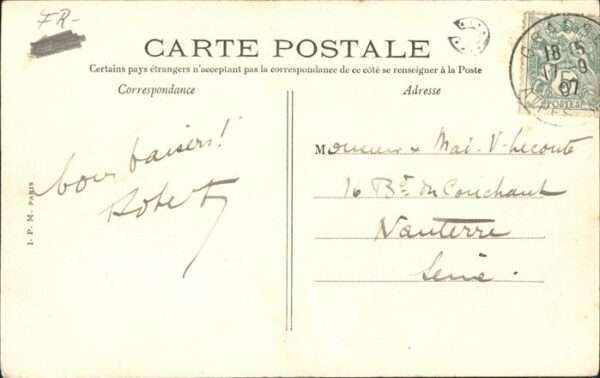 FR-
CARTE POSTALE
Certains pays étrangers n'acceptent pas la correspondance de ce côté se renseigner à la Poste
Correspondance
Adresse
18 15
17 - 9
07
5
POSTES
bons baisers!
Robert
Monsieur & Mad. V. Lecoute
16 Bd. du Couchant
Nanterre
Seine.
I. P. M. PARIS